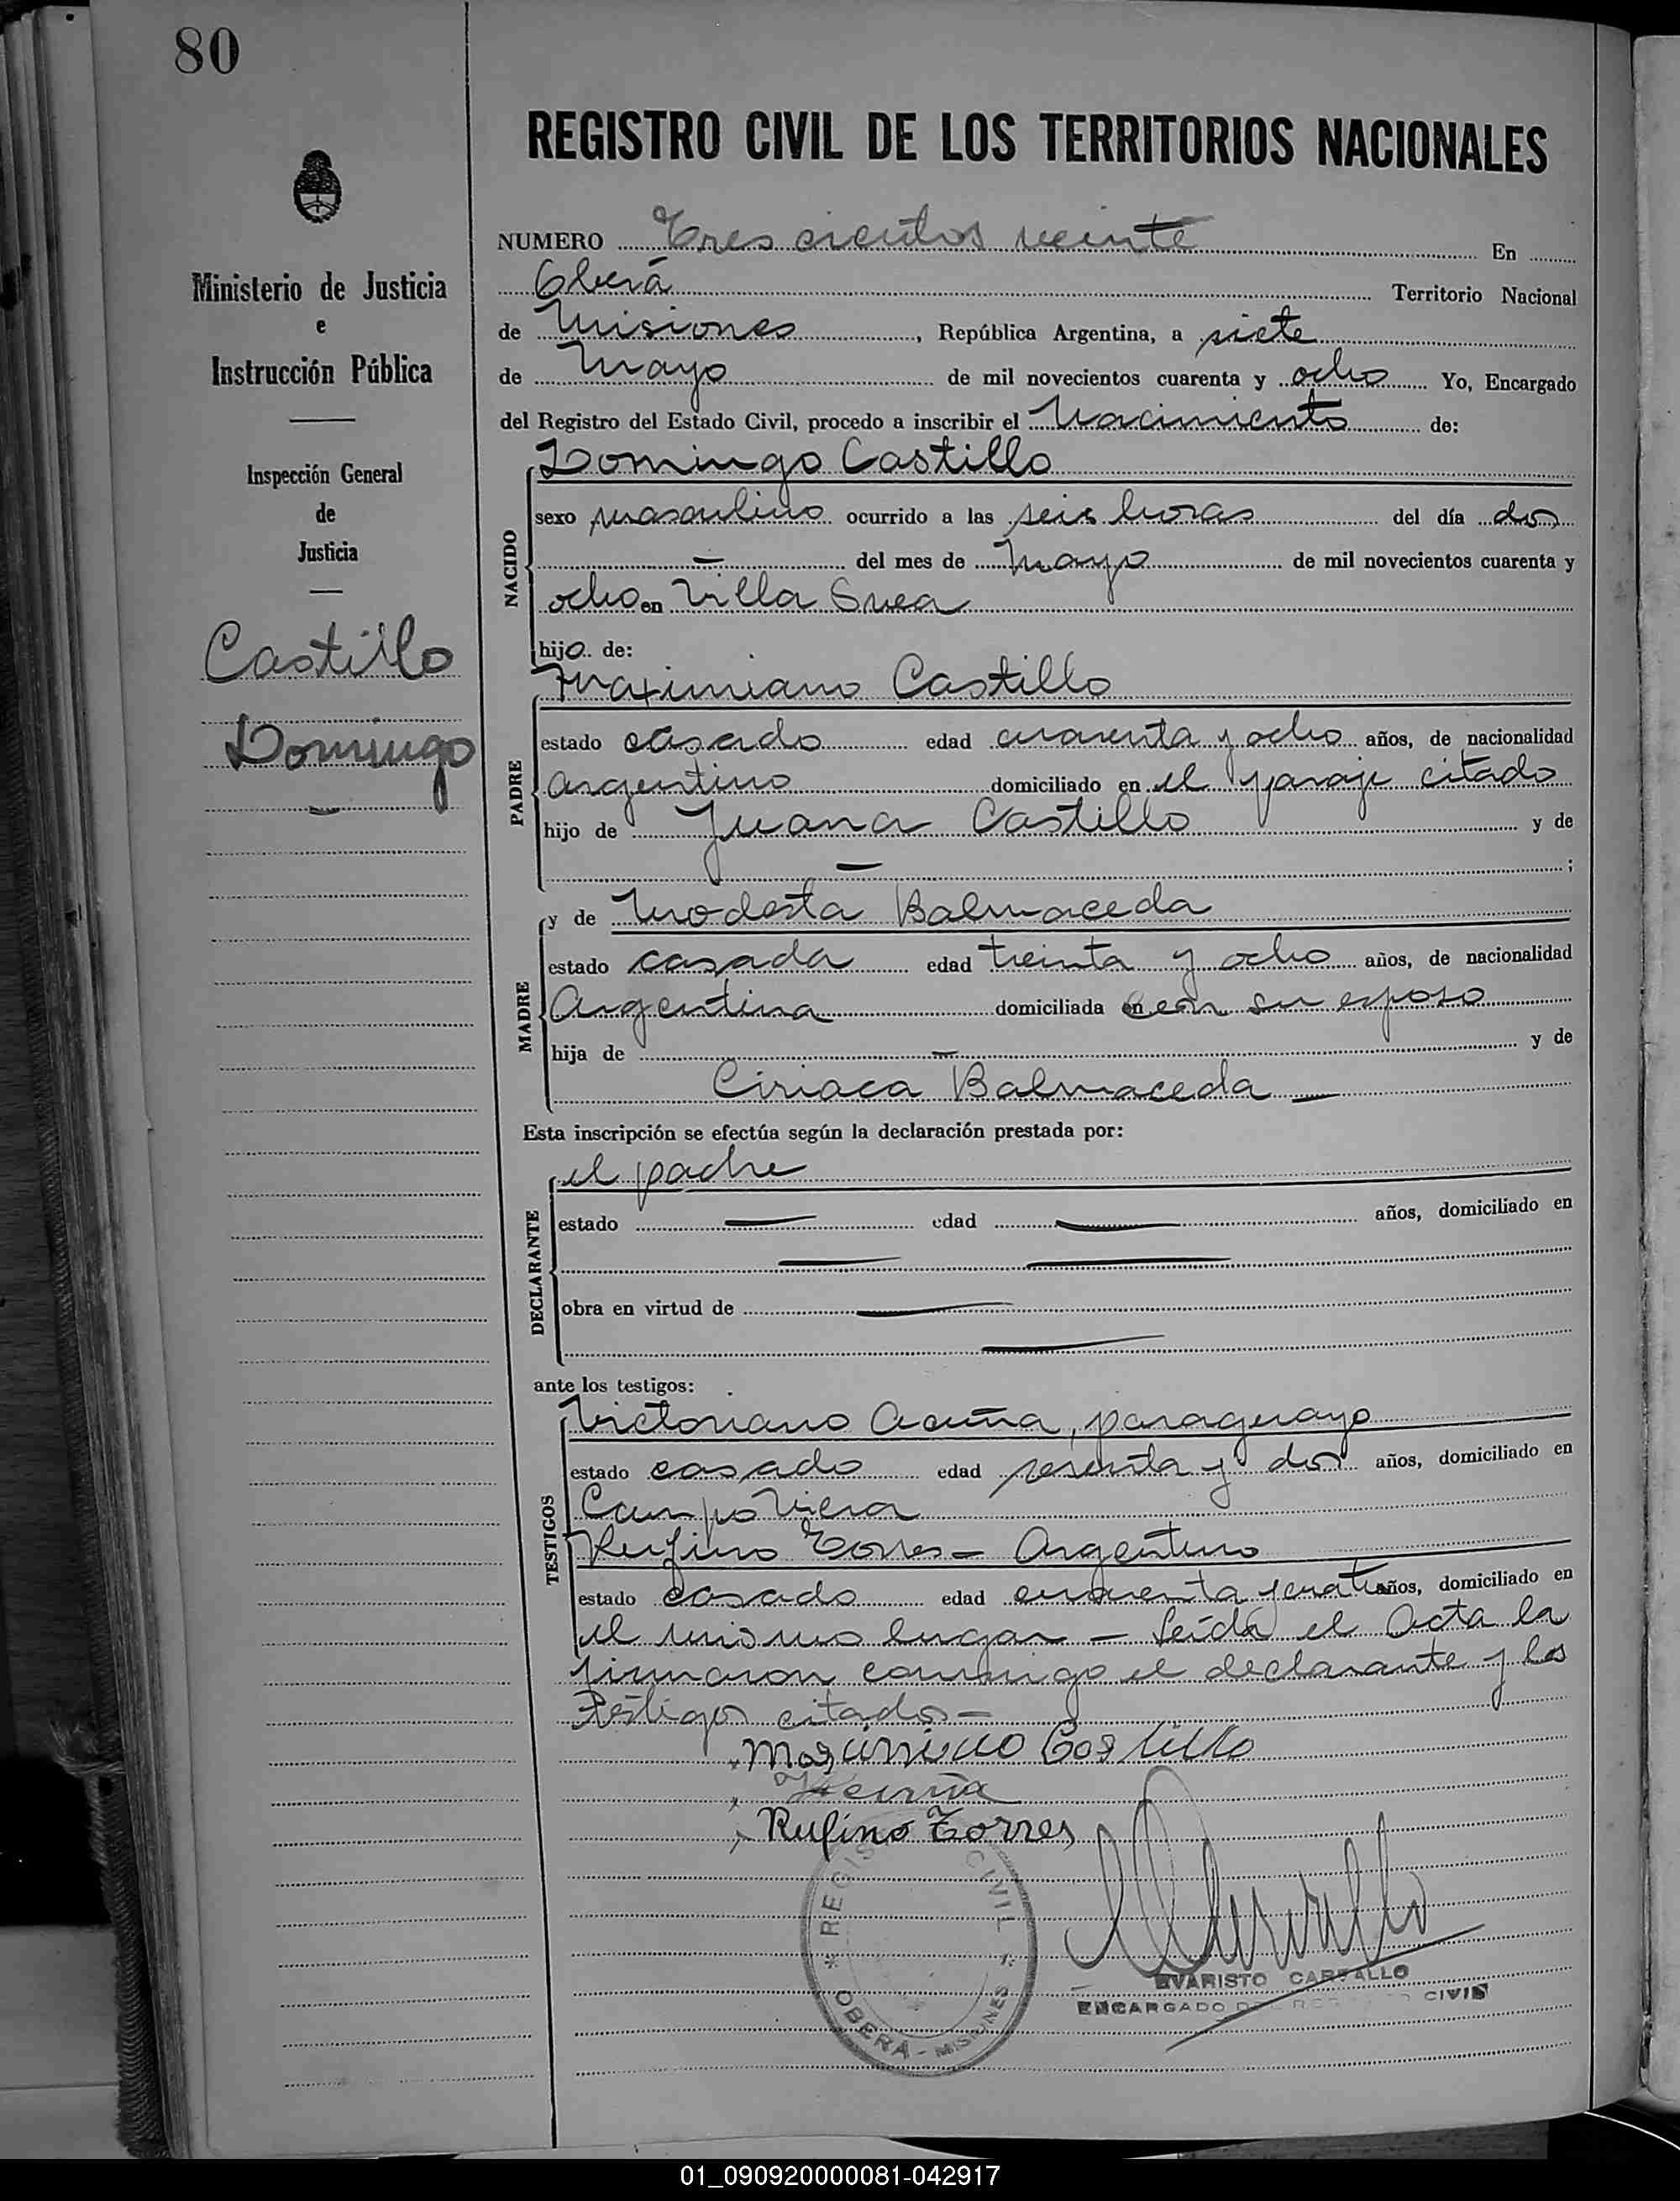 80
Ministerio de Justicia
e
Instrucción Pública
Inspección General
de
Justicia
Castillo
Domingo
REGISTRO CIVIL DE LOS TERRITORIOS NACIONALES
NUMERO Tres cientos veinte En
Oberá Territorio Nacional
de Misiones, República Argentina, a siete
de Mayo de mil novecientos cuarenta y ocho Yo, Encargado
del Registro del Estado Civil, procedo a inscribir el Nacimiento de:
Domingo Castillo
NACIDO
sexo masculino ocurrido a las seis horas del día dos
del mes de Mayo de mil novecientos cuarenta y
ocho en Villa Svea
hijo de:
Maximiano Castillo
PADRE
estado casado edad cuarenta y ocho años, de nacionalidad
argentino domiciliado en el paraje citado
hijo de Juana Castillo y de
;
y de Modesta Balmaceda
MADRE
estado casada edad treinta y ocho años, de nacionalidad
Argentina domiciliada en con su esposo
hija de y de
Ciriaca Balmaceda
Esta inscripción se efectúa según la declaración prestada por:
el padre
DECLARANTE
estado edad años, domiciliado en
obra en virtud de
ante los testigos:
Victoriano Acuña, paraguayo
TESTIGOS
estado casado edad sesenta y dos años, domiciliado en
Campo Viera
Rufino Torres - Argentino
estado casado edad y cuatro años, domiciliado en
el mismo lugar - Leída el Acta la
firmaron conmigo el declarante y los
testigos citados -
Maximiano Castillo
Acuña
Rufino Torres
REGIS CIVIL
OBERÁ - MISIONES
EVARISTO CARVALLO
ENCARGADO DEL REG CIVIL
01_090920000081-042917